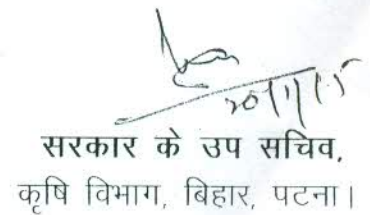 20/1/15
सरकार के उप सचिव,
कृषि विभाग, बिहार, पटना।